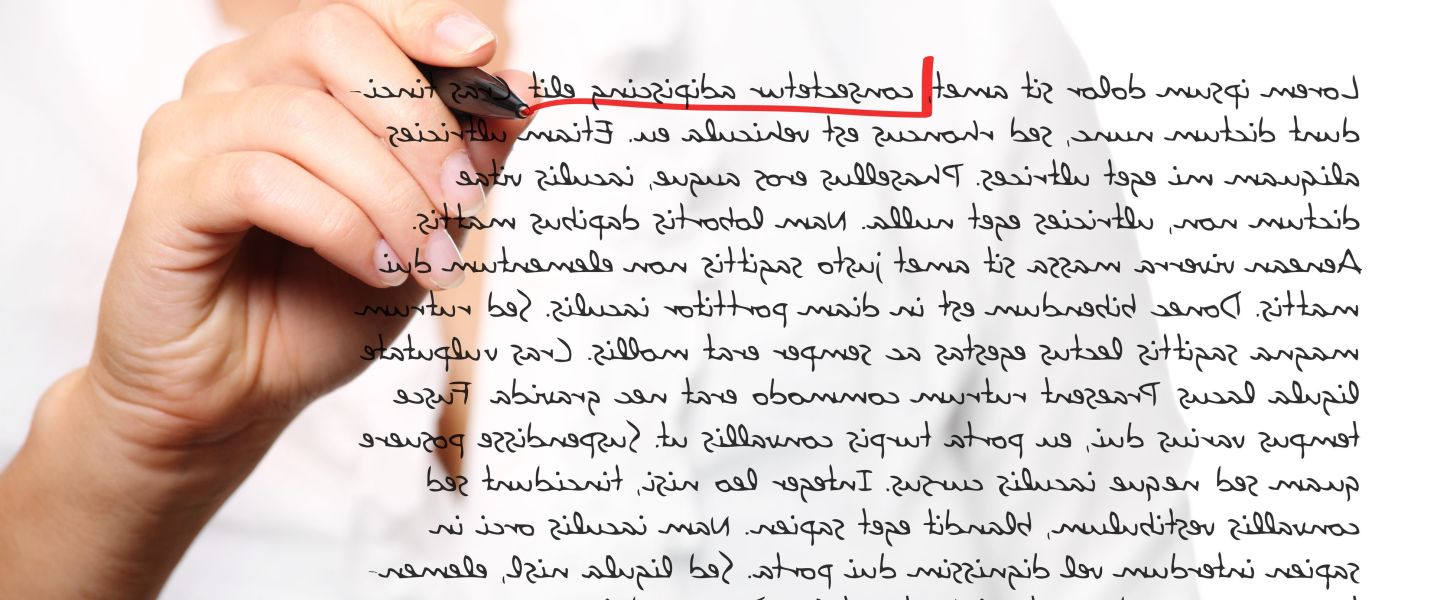 Lorem ipsum dolor sit amet, consectetur adipiscing elit Cras tinci-
dunt dictum nunc, sed rhoncus est vehicula eu. Etiam ultricies
aliquam mi eget ultrices. Phasellus eros augue, iaculis vitae
dictum non, ultricies eget nulla. Nam lobortis dapibus mattis.
Aenean viverra massa sit amet justo sagittis non elementum dui
mattis. Donec bibendum est in diam porttitor iaculis. Sed rutrum
magna sagittis lectus egestas ac semper erat mollis. Cras vulputate
ligula lacus Praesent rutrum commodo erat nec gravida Fusce
tempus varius dui, eu porta turpis convallis ut. Suspendisse posuere
quam sed neque iaculis cursus. Integer leo nisi, tincidunt sed
convallis vestibulum, blandit eget sapien. Nam iaculis orci in
sapien interdum vel dignissim dui porta. Sed ligula nisl, elemen-